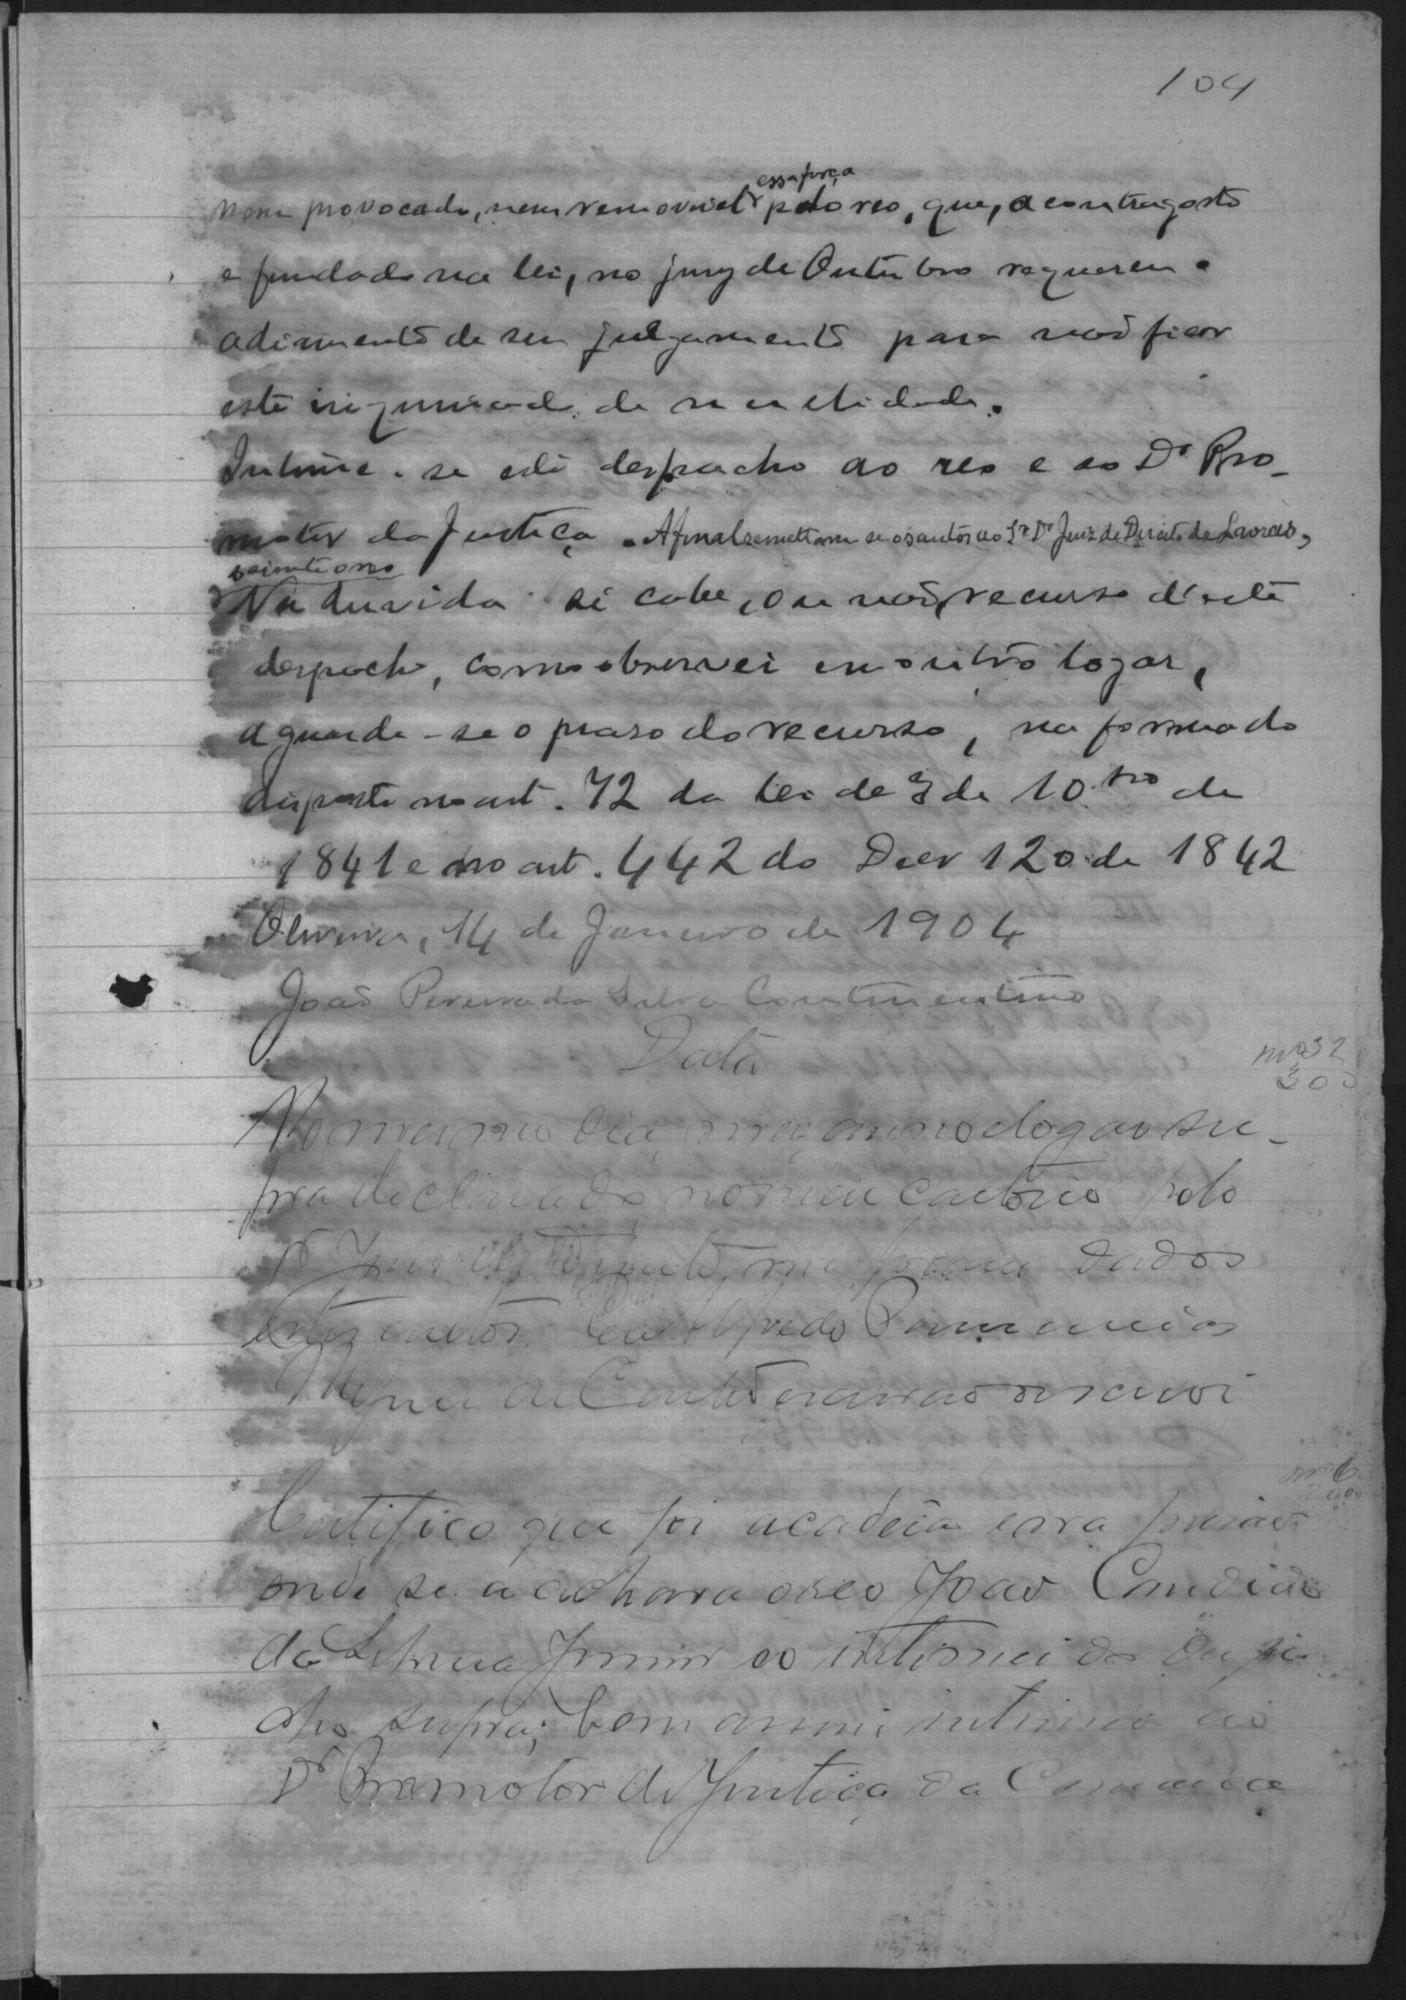 104
nem provocado, nem removivel essa força pelo reo, que, a contragosto
e fundado na lei, no jury de Outubro requereu o
adiamento de seu julgamento para não ficar
este inquinado de nullidade.
Intime-se este despacho ao reo e ao Dr Pro-
motor da Justiça. Afinal remettam-se os autos ao Sr Dr Juiz de Direito de Lavras,
Na duvida si cabe, ou não, recurso d'este
despacho, como observei em outro logar,
aguarde-se o praso do recurso, na forma do
disposto no art. 72 da lei de 3 de 10bro de
1841 e no art. 442 do Decr 120 de 1842
Oliveira, 14 de Janeiro de 1904
João Pereira da Silva Continentino
Data
No mesmo dia, mez, anno e logar su-
pra declarado, no meu cartorio pelo
Dr Juiz de Direito, me foram dados
estes autos. Eu Alfredo
escrivão o escrevi
Certifico que fui a cadeia e na prisão
onde se achava o reo João Candido
da Junior o intimei do despa-
cho supra; bem assim intimei ao
Dr Promotor de Justiça da Comarca